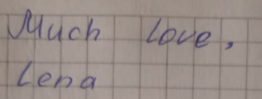 Much love,
Lena